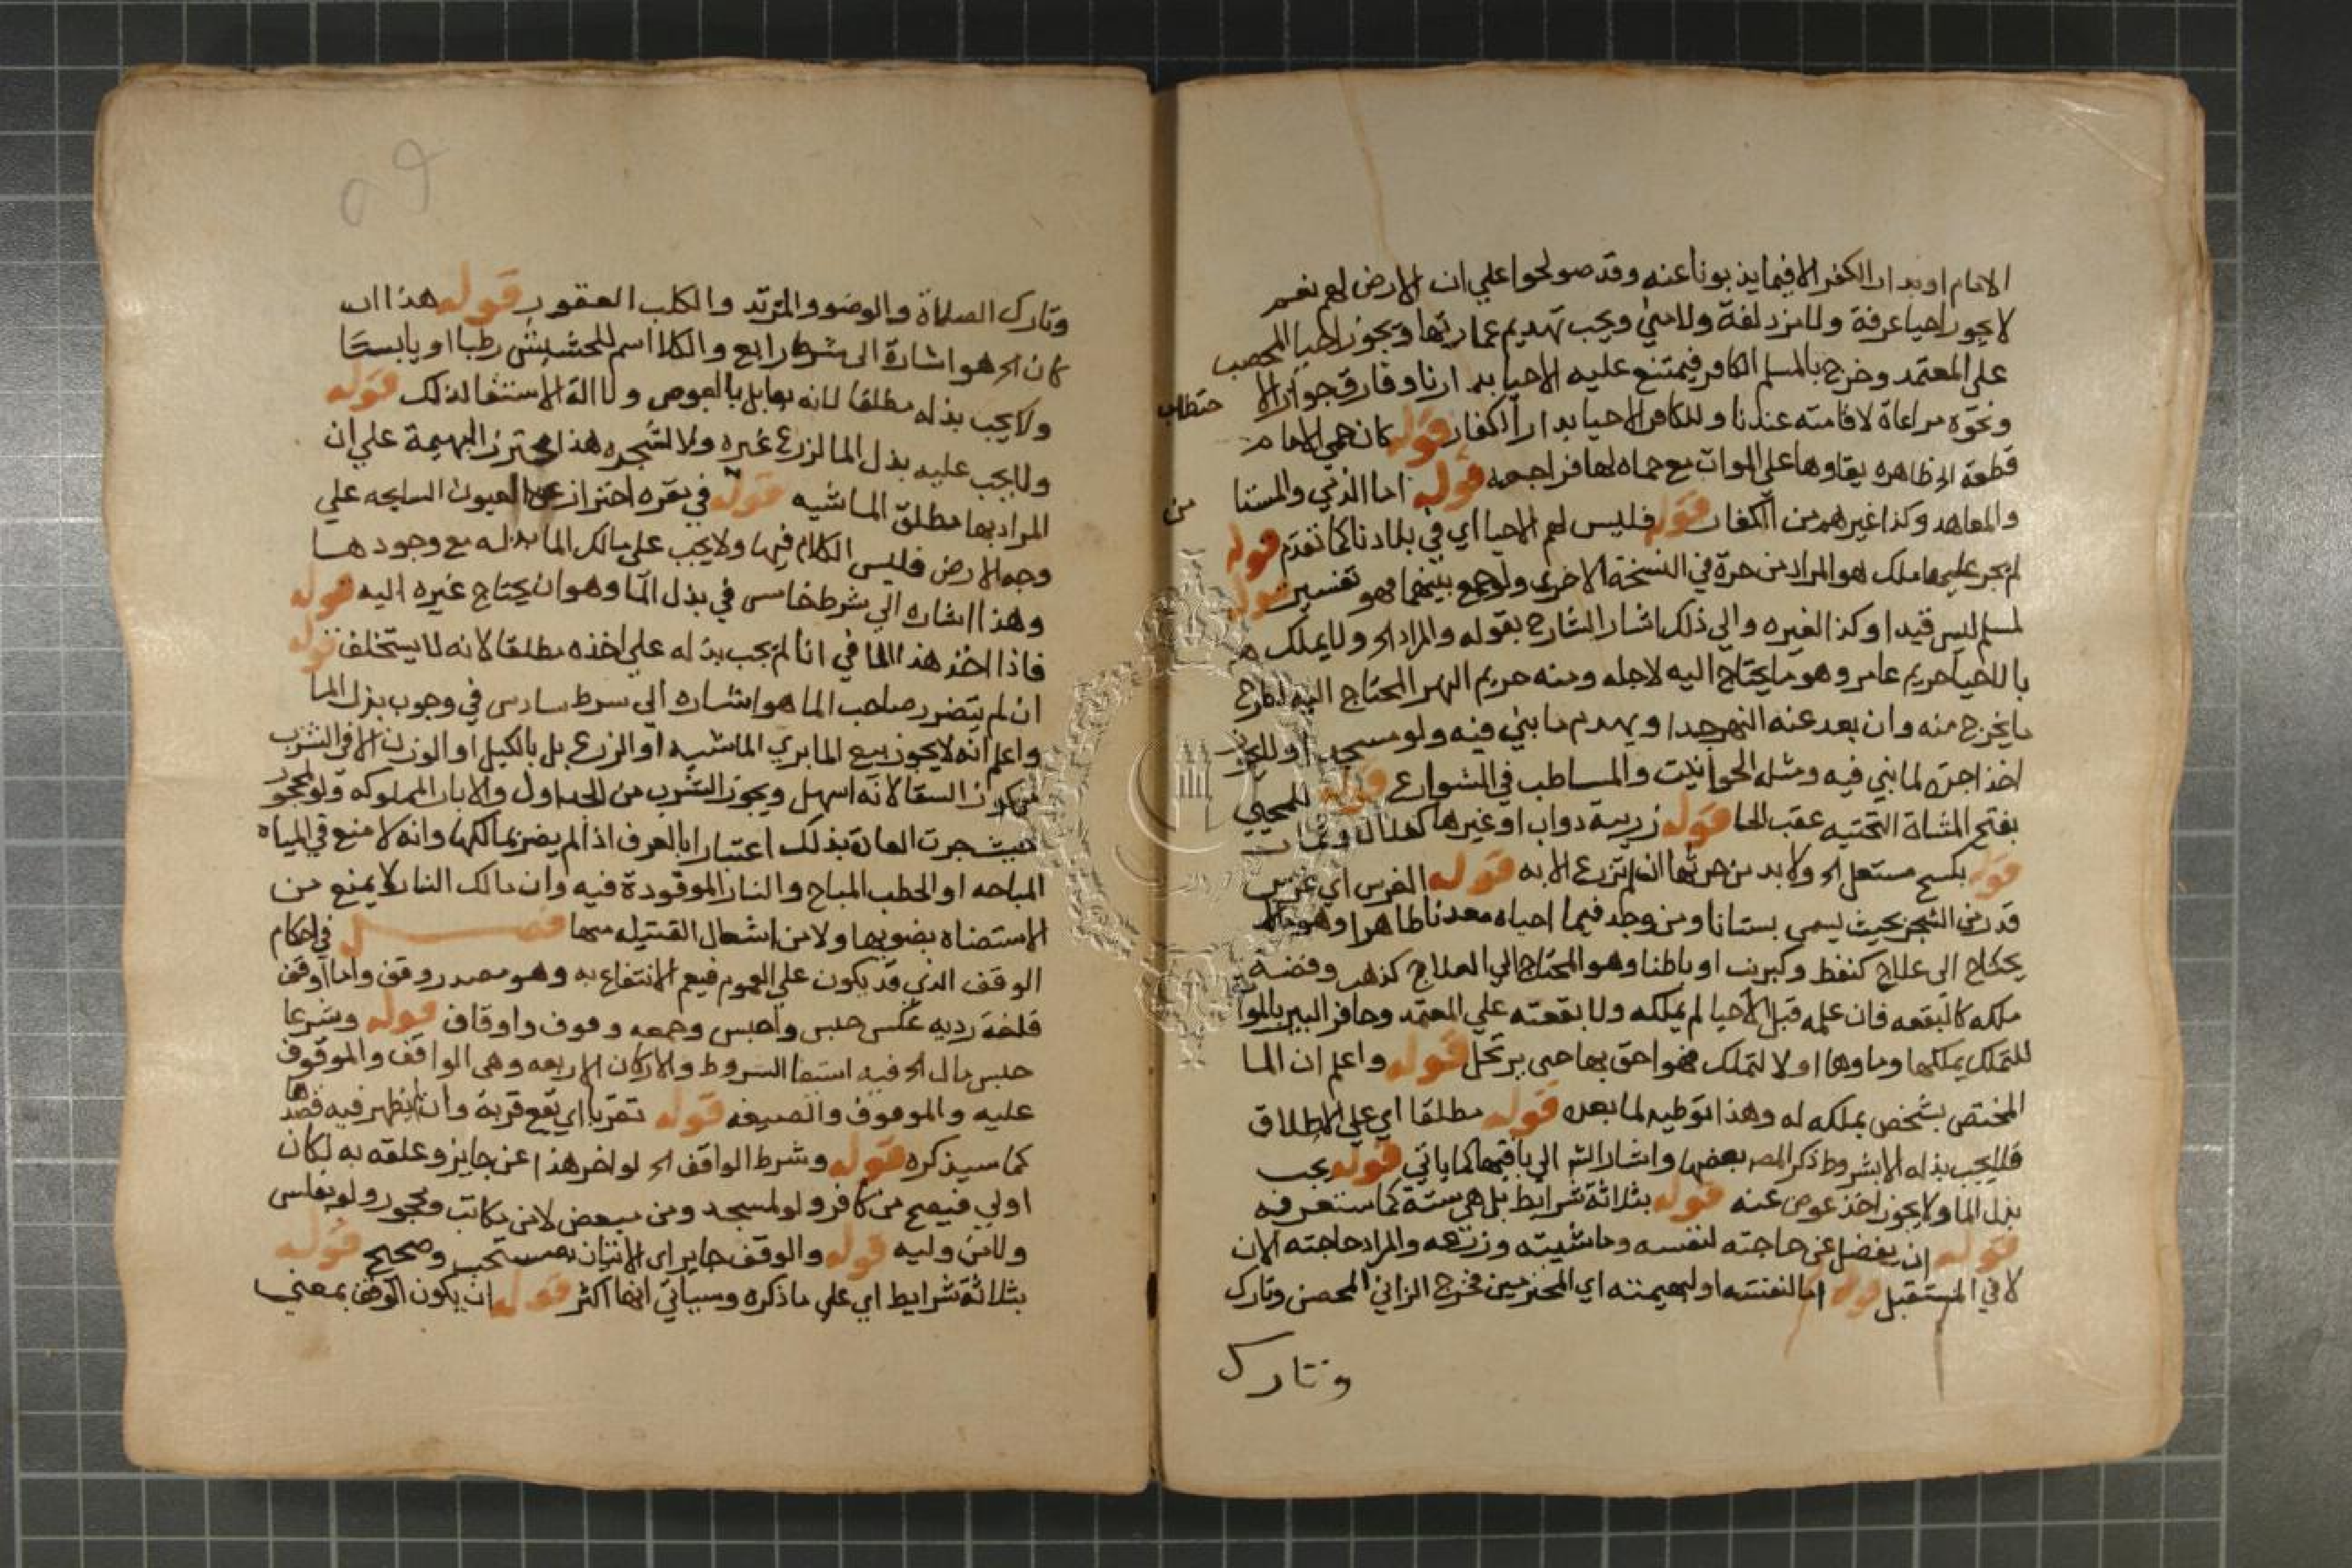 الامام او بدار الكفر الا فيما يذبونا عنه وقد صولحوا علي ان الارض لهم نعم
لا يجوز احيا عرفة ولا مزدلفة ولا مني ويجب تهديم عمارتها ويجوز احيا المحصب
علي المعتمد وخرج بالمسلم الكافر فيمتنع عليه الاحيا بدارنا وفارق جواز الا حتطاب
ونحوه مراعاة لاقامته عندنا وللكافر الاحيا بدار الكفار قوله كان حمي الامام
قطعة الخ ظاهره بقاوها علي الموات مع حماه لها فراجعه قوله اما الذمي والمستا من
والمعاهد وكذا غيرهم من الكفار قوله فليس لهم الاحيا اي في بلادنا كما تقدم قوله
لم يجر عليها ملك هو المراد من حرة في النسخة الاخري ولو جمع بينهما فهو تفسير قوله
لمسلم ليس قيدا وكذا لغيره والي ذلك اشار الشارح بقوله والمراد الخ ولا يملك
بالاحيا حريم عامر وهو ما يحتاج اليه لاجله ومنه حريم النهر المحتاج اليه لطرح
ما يخرج منه وان بعد عنه النهر جدا ويهدم ما بني فيه ولو مسجد
اخذ اجرة لما بني فيه ومثله الحوانيت والمساطب في الشوارع قوله للمحيي
بفتح المثناة التحتيه عقب الحا قوله زريبة دواب او غيرها كغلال وثمار
قوله بكسح مستعل الخ ولا بد من حرثها ان لم تزرع الا به قوله الغرس اي غرس
قدر من الشجر بحيث يسمي بستانا ومن وجد فيما احياه معدنا ظاهرا وهو ما لا
يحتاج الي علاج كنفط وكبريت او باطنا وهو المحتاج الي العلاج كذهب وفضة
ملكه كالبقعه فان علمه قبل الاحيا لم يملكه ولا بقعته علي المعتمد وحافر البير بالموات
للتملك يملكها وماوها او لا لتملك فهو احق بها حتي يرتحل قوله واعلم ان الما
المختص بشخص يملكه له وهذا توطيه لما بعده قوله مطلقا اي علي الاطلاق
فلا يجب بذله الا بشروط ذكر المص بعضها واشار الش الي باقيها كما ياتي قوله يجب
بذل الما ولا يجوز اخذ عوض عنه قوله بثلاثة شرايط بل هي ستة كما ستعرفه
قوله ان يفضل عن حاجته لنفسه وماشيته وزرعه والمراد حاجته الان
لا في المستقبل قوله اما لنفسه او لبهيمته اي المحترمين فخرج الزاني المحصن وتارك
وتارك
وتارك الصلاة والوضو والمرتد والكلب العقور قوله هذا ان
كان الخ هو اشارة الي شرط رابع والكلا اسم للحشيش رطبا او يابسا
ولا يجب بذله مطلقا لانه يقابل بالعوض ولا الة الاستقا لذلك قوله
ولا يجب عليه بذل الما لزرع غيره ولا لشجره هذا محترز البهيمة علي ان
المراد بها مطلق الماشيه قوله في بقره احتراز عن العيون السايحه علي
وجه الارض فليس الكلام فيها ولا يجب علي مالك الما بذله مع وجود ها
وهذا اشاره الي شرط خامس في بذل الما وهو ان يحتاج غيره اليه قوله
فاذا اخذ هذا الما في انا لم يجب بذله علي اخذه مطلقا لانه لا يستخلف قوله
ان لم يتضرر صاحب الما هو اشاره الي شرط سادس في وجوب بذل الما
واعلم انه لا يجوز بيع الما بري الماشيه او الزرع بل بالكيل او الوزن الا في الشرب
من كوز السقا لانه اسهل ويجوز الشرب من الجداول والابار المملوكه ولو لمحجور
حيث جرت العادة بذلك اعتبارا بالعرف اذا لم يضر بمالكها وانه لا منع في المياه
المباحه او الحطب المباح والنار الموقودة فيه وان مالك النار لا يمنع من
الاستضاة بضويها ولا من اشعال الفتيله منها فصل في احكام
الوقف الذي قد يكون علي العموم فيعم الانتفاع به وهو مصدر وقف واما اوقف
فلغة رديه عكس حبس واحبس وجمعه وقوف واوقاف قوله وشرعا
حبس مال الخ فيه استفا الشروط والاركان الاربعه وهي الواقف والموقوف
عليه والموقوف والصيغه قوله تقربا اي يقع قربة وان لم يظهر فيه قصدها
كما سيذكره قوله وشرط الواقف الخ لو اخر هذا عن جايز وعلقه به لكان
اولي فيصح من كافر ولو لمسجد ومن مبعض لا من مكاتب ومحجور ولو بفلس
ولا من وليه قوله والوقف جايز اي الاتيان به مستحب وصحيح قوله
بثلاثة شرايط اي علي ما ذكره وسياتي انها اكثر قوله ان يكون الوقف بمعني